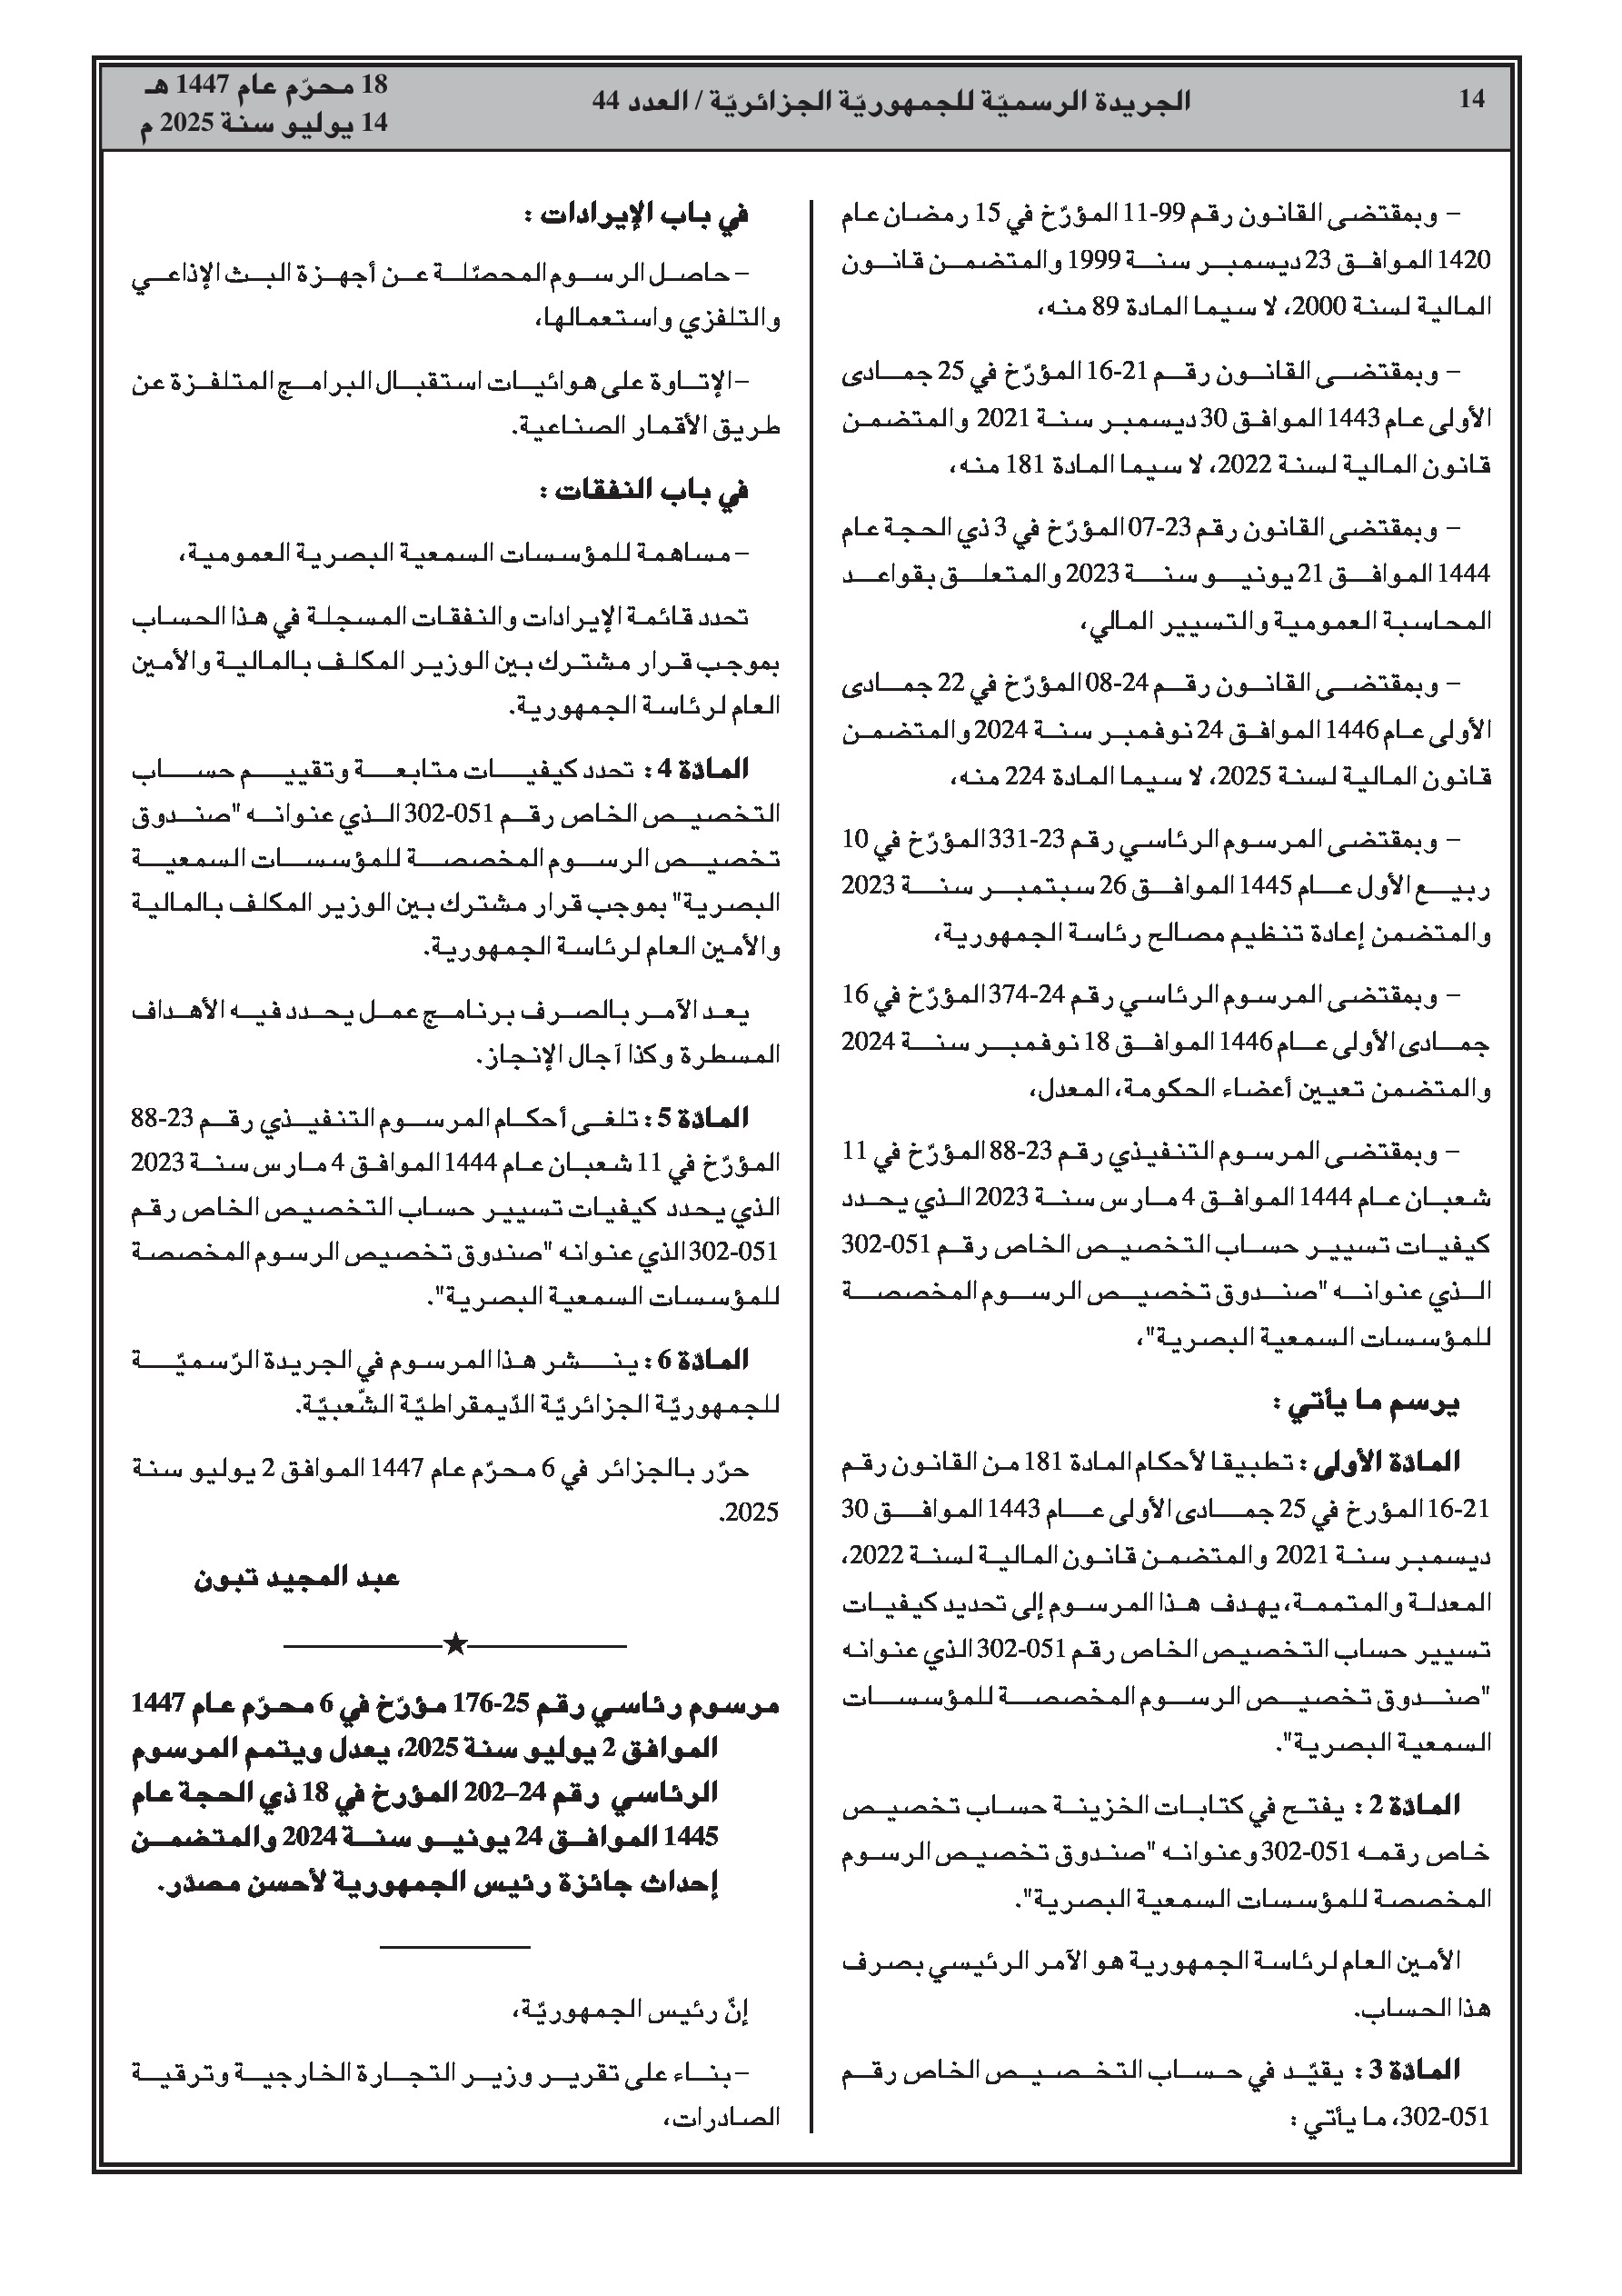 14
الجريدة الرسميّة للجمهوريّة الجزائريّة / العدد 44
18 محرّم عام 1447 هـ
14 يوليو سنة 2025 م
– وبمقتضى القانون رقم 99-11 المؤرّخ في 15 رمضان عام
1420 الموافق 23 ديسمبر سنة 1999 والمتضمن قانون
المالية لسنة 2000، لا سيما المادة 89 منه،
– وبمقتضى القانون رقم 21-16 المؤرّخ في 25 جمادى
الأولى عام 1443 الموافق 30 ديسمبر سنة 2021 والمتضمن
قانون المالية لسنة 2022، لا سيما المادة 181 منه،
– وبمقتضى القانون رقم 23-07 المؤرّخ في 3 ذي الحجة عام
1444 الموافق 21 يونيو سنة 2023 والمتعلق بقواعد
المحاسبة العمومية والتسيير المالي،
– وبمقتضى القانون رقم 24-08 المؤرّخ في 22 جمادى
الأولى عام 1446 الموافق 24 نوفمبر سنة 2024 والمتضمن
قانون المالية لسنة 2025، لا سيما المادة 224 منه،
– وبمقتضى المرسوم الرئاسي رقم 23-331 المؤرّخ في 10
ربيع الأول عام 1445 الموافق 26 سبتمبر سنة 2023
والمتضمن إعادة تنظيم مصالح رئاسة الجمهورية،
– وبمقتضى المرسوم الرئاسي رقم 24-374 المؤرّخ في 16
جمادى الأولى عام 1446 الموافق 18 نوفمبر سنة 2024
والمتضمن تعيين أعضاء الحكومة، المعدل،
– وبمقتضى المرسوم التنفيذي رقم 23-88 المؤرّخ في 11
شعبان عام 1444 الموافق 4 مارس سنة 2023 الذي يحدد
كيفيات تسيير حساب التخصيص الخاص رقم 051-302
الذي عنوانه "صندوق تخصيص الرسوم المخصصة
للمؤسسات السمعية البصرية"،
يرسم ما يأتي :
المادّة الأولى : تطبيقا لأحكام المادة 181 من القانون رقم
21-16 المؤرخ في 25 جمادى الأولى عام 1443 الموافق 30
ديسمبر سنة 2021 والمتضمن قانون المالية لسنة 2022،
المعدلة والمتممة، يهدف هذا المرسوم إلى تحديد كيفيات
تسيير حساب التخصيص الخاص رقم 051-302 الذي عنوانه
"صندوق تخصيص الرسوم المخصصة للمؤسسات
السمعية البصرية".
المادّة 2 : يفتح في كتابات الخزينة حساب تخصيص
خاص رقمه 051-302 وعنوانه "صندوق تخصيص الرسوم
المخصصة للمؤسسات السمعية البصرية".
الأمين العام لرئاسة الجمهورية هو الآمر الرئيسي بصرف
هذا الحساب.
المادّة 3 : يقيّد في حساب التخصيص الخاص رقم
051-302، ما يأتي :
في باب الإيرادات :
– حاصل الرسوم المحصّلة عن أجهزة البث الإذاعي
والتلفزي واستعمالها،
– الإتاوة على هوائيات استقبال البرامج المتلفزة عن
طريق الأقمار الصناعية.
في باب النفقات :
– مساهمة للمؤسسات السمعية البصرية العمومية،
تحدد قائمة الإيرادات والنفقات المسجلة في هذا الحساب
بموجب قرار مشترك بين الوزير المكلف بالمالية والأمين
العام لرئاسة الجمهورية.
المادّة 4 : تحدد كيفيات متابعة وتقييم حساب
التخصيص الخاص رقم 051-302 الذي عنوانه "صندوق
تخصيص الرسوم المخصصة للمؤسسات السمعية
البصرية" بموجب قرار مشترك بين الوزير المكلف بالمالية
والأمين العام لرئاسة الجمهورية.
يعد الآمر بالصرف برنامج عمل يحدد فيه الأهداف
المسطرة وكذا آجال الإنجاز.
المادّة 5 : تلغى أحكام المرسوم التنفيذي رقم 23-88
المؤرّخ في 11 شعبان عام 1444 الموافق 4 مارس سنة 2023
الذي يحدد كيفيات تسيير حساب التخصيص الخاص رقم
051-302 الذي عنوانه "صندوق تخصيص الرسوم المخصصة
للمؤسسات السمعية البصرية".
المادّة 6 : ينشر هذا المرسوم في الجريدة الرّسميّة
للجمهوريّة الجزائريّة الدّيمقراطيّة الشّعبيّة.
حرّر بالجزائر في 6 محرّم عام 1447 الموافق 2 يوليو سنة
2025.
عبد المجيد تبون
مرسوم رئاسي رقم 25-176 مؤرّخ في 6 محرّم عام 1447
الموافق 2 يوليو سنة 2025، يعدل ويتمم المرسوم
الرئاسي رقم 24–202 المؤرخ في 18 ذي الحجة عام
1445 الموافق 24 يونيو سنة 2024 والمتضمن
إحداث جائزة رئيس الجمهورية لأحسن مصدّر.
إنّ رئيس الجمهوريّة،
– بناء على تقرير وزير التجارة الخارجية وترقية
الصادرات،